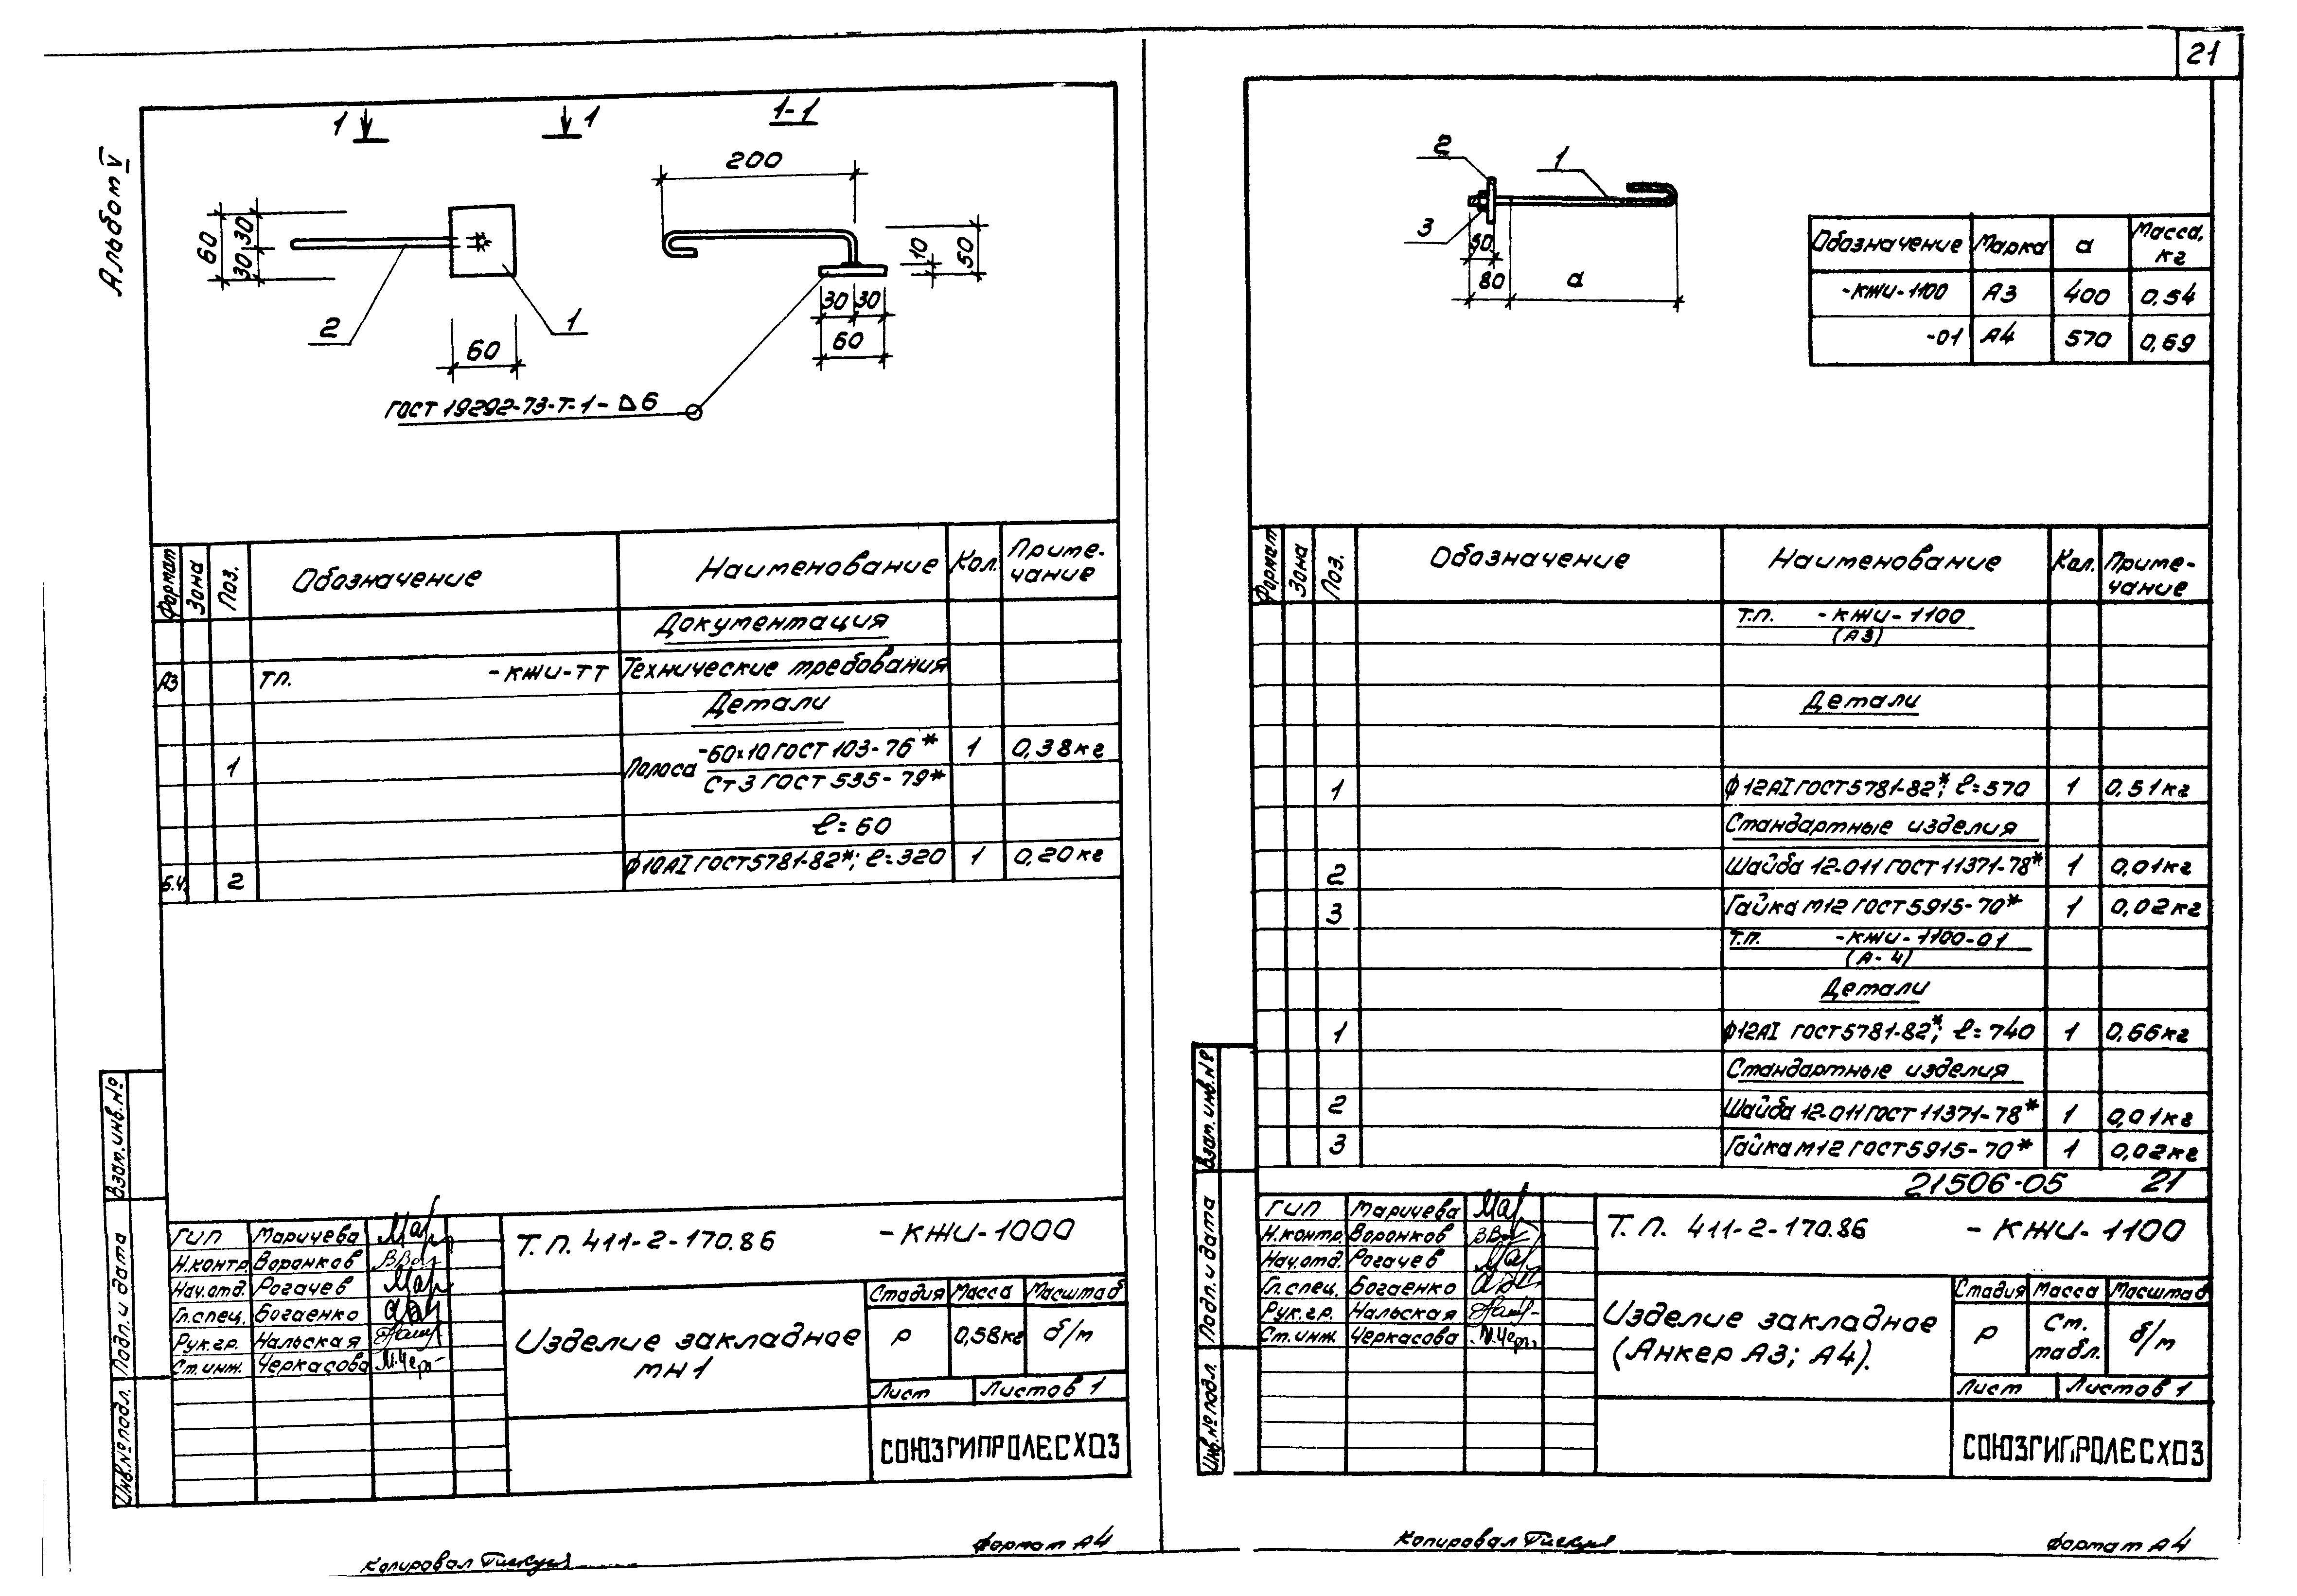 21
Альбом V
1 1 1-1
200
60 30 30
10 50
2 1
60
30 30
60
ГОСТ 19292-73-Т-1-Δ6
Формат Зона Поз. Обозначение Наименование Кол. Приме-
чание
Документация
А3 Т.П. -КЖИ-ТТ Технические требования
Детали
1 Полоса -60×10 ГОСТ 103-76* 1 0,38кг
Ст3 ГОСТ 535-79*
ℓ=60
Б.Ч. 2 ф10АI ГОСТ5781-82*; ℓ=320 1 0,20кг
Взам.инв.№
Подп. и дата
Инв.№подл.
ГИП Маричева
Н.контр. Воронков
Нач.отд. Рогачев
Гл.спец. Богаенко
Рук.гр. Нальская
Ст.инж. Черкасова
Т.П. 411-2-170.86 -КЖИ-1000
Изделие закладное
МН1
Стадия Масса Масштаб
Р 0,58кг б/м
Лист Листов 1
СОЮЗГИПРОЛЕСХОЗ
Копировал
Формат А4
2 1
3
50
80 а
Обозначение Марка а Масса,
кг
-КЖИ-1100 А3 400 0,54
-01 А4 570 0,69
Формат Зона Поз. Обозначение Наименование Кол. Приме-
чание
Т.П. -КЖИ-1100
(А3)
Детали
1 ф12АI ГОСТ5781-82*; ℓ=570 1 0,51кг
Стандартные изделия
2 Шайба 12-011 ГОСТ 11371-78* 1 0,01кг
3 Гайка М12 ГОСТ 5915-70* 1 0,02кг
Т.П. -КЖИ-1100-01
(А-4)
Детали
1 ф12АI ГОСТ5781-82*; ℓ=740 1 0,66кг
Стандартные изделия
2 Шайба 12-011 ГОСТ 11371-78* 1 0,01кг
3 Гайка М12 ГОСТ5915-70* 1 0,02кг
21506-05 21
Взам.инв.№
Подп. и дата
Инв.№подл.
ГИП Маричева
Н.контр. Воронков
Нач.отд. Рогачев
Гл.спец. Богаенко
Рук.гр. Нальская
Ст.инж. Черкасова
Т.П. 411-2-170.86 -КЖИ-1100
Изделие закладное
(Анкер А3; А4).
Стадия Масса Масштаб
Р См.
табл. б/м
Лист Листов 1
СОЮЗГИПРОЛЕСХОЗ
Копировал
Формат А4